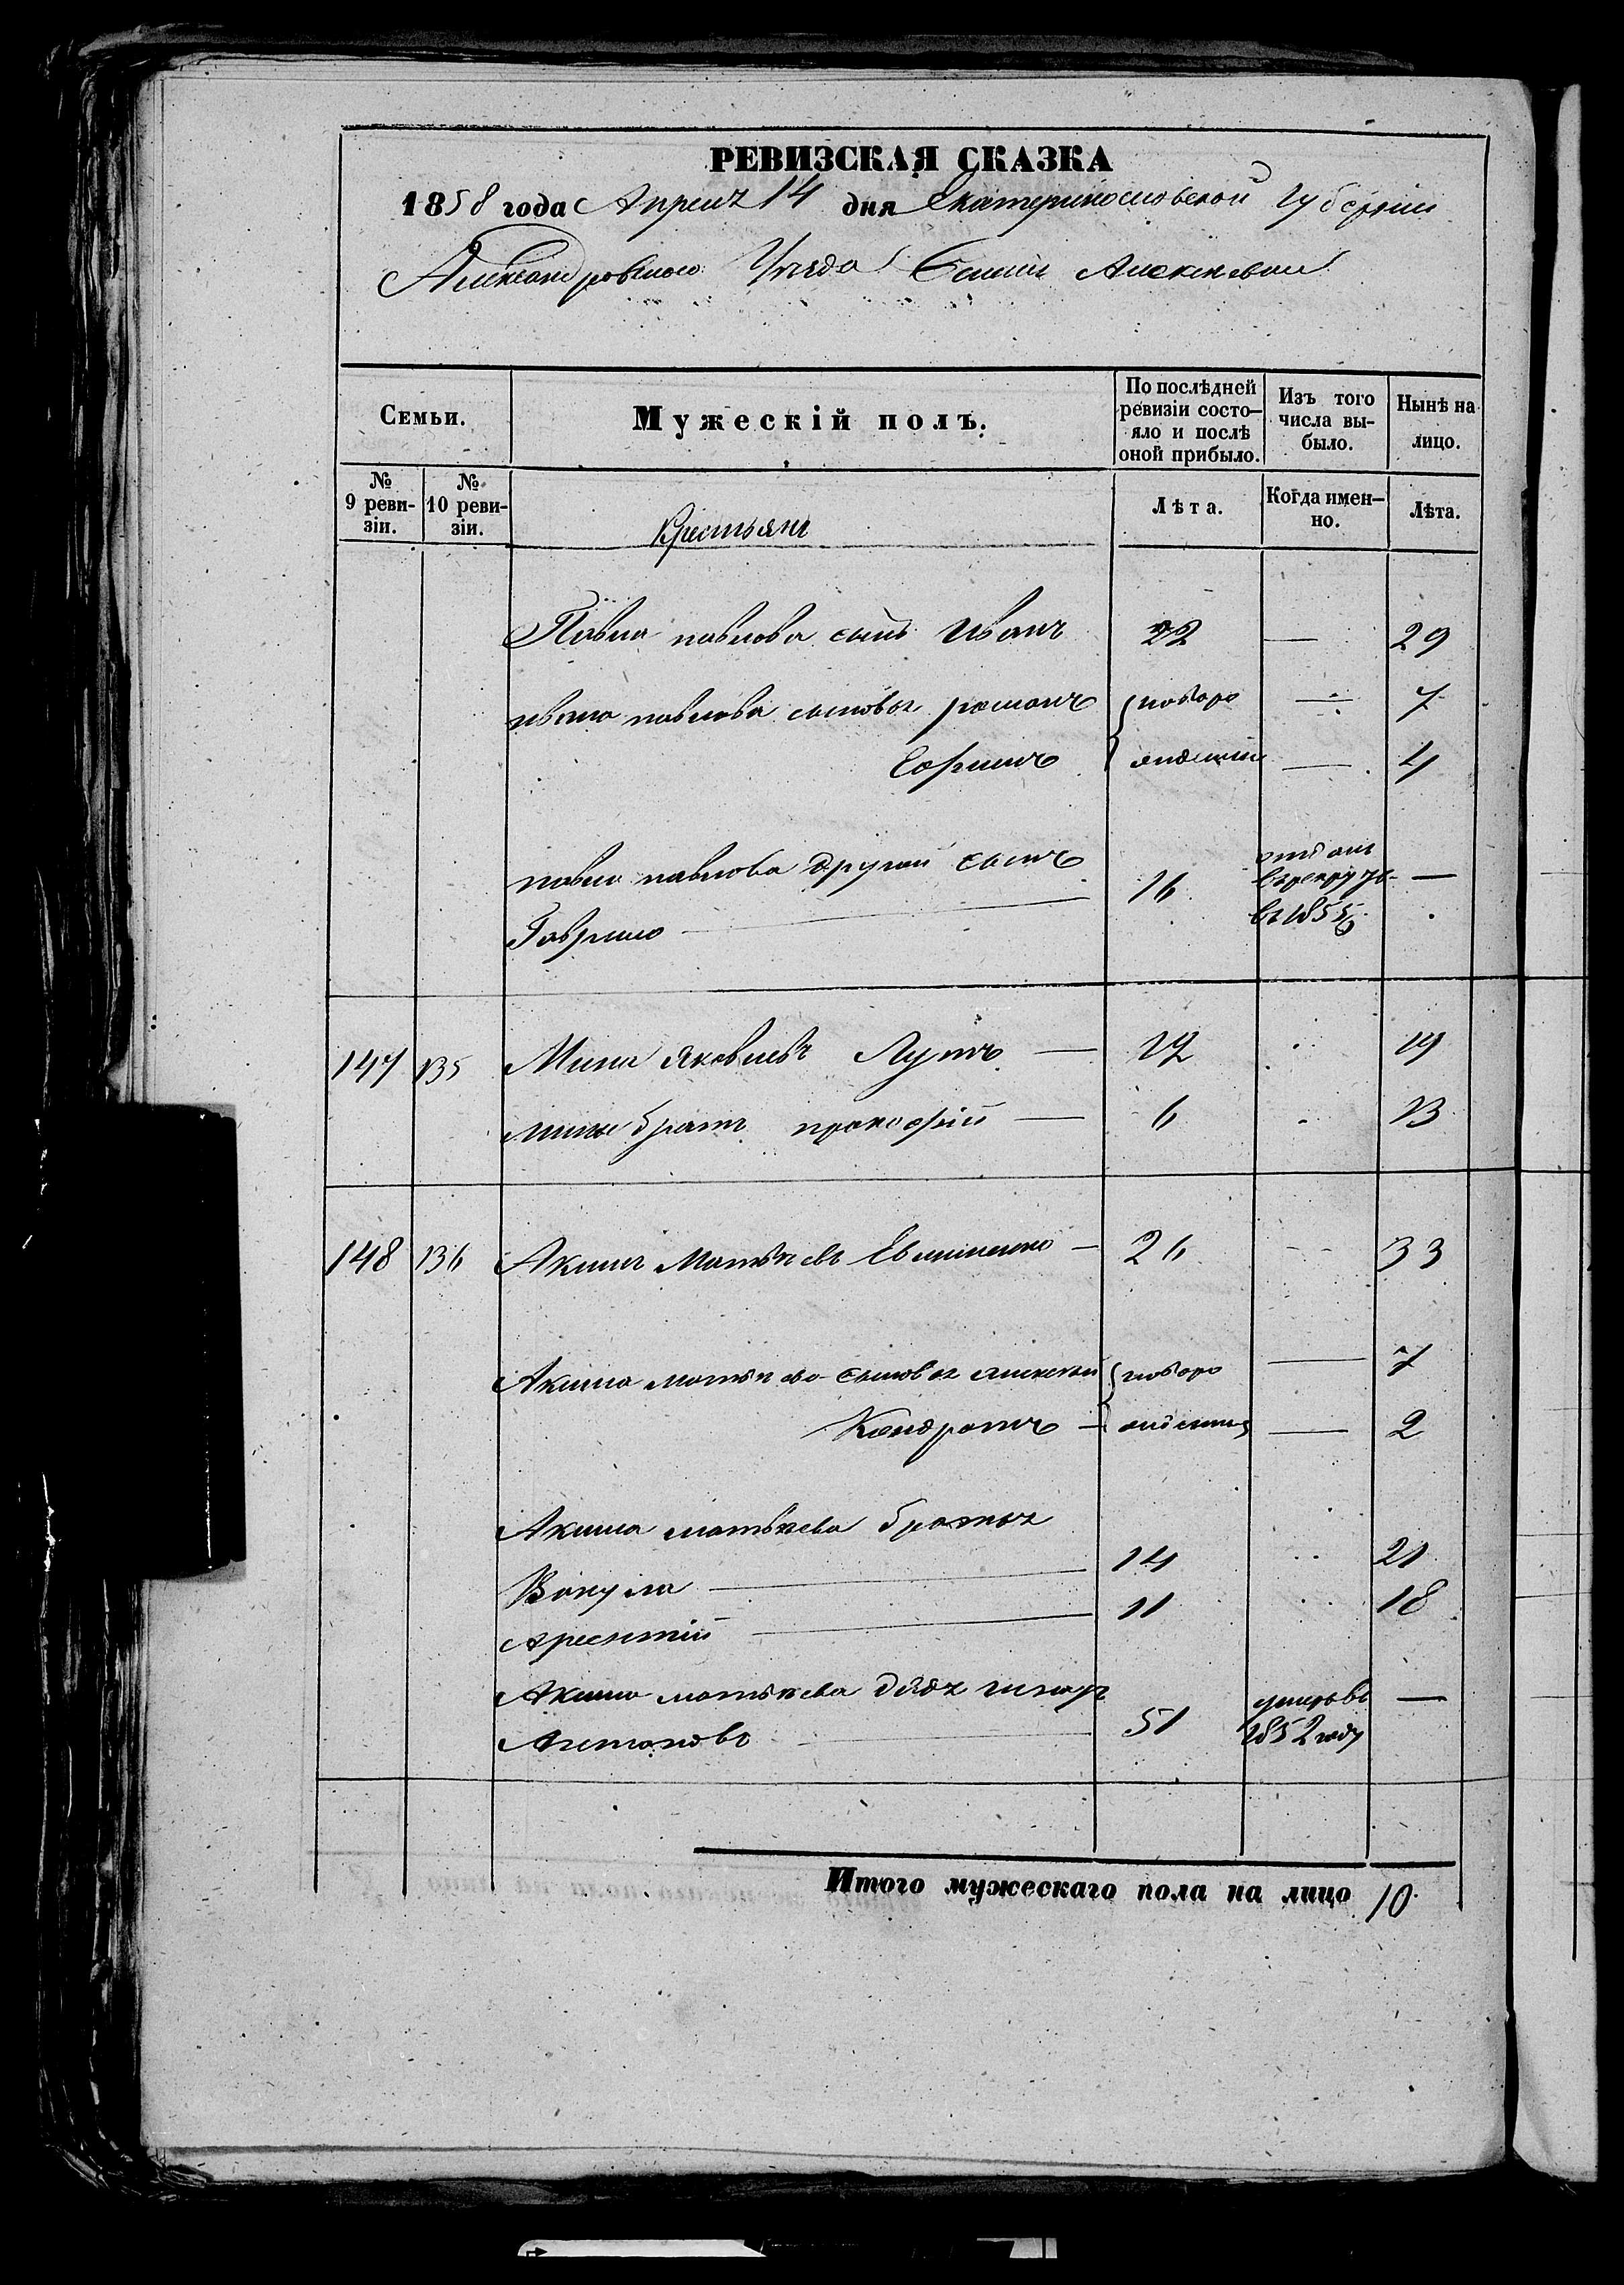 РЕВИЗСКАЯ СКАЗКА
1858 года Апреля 14 дня Екатеринославской губернии
Александровского Уезда
Семьи.
Мужескій полъ.
По послѣдней ревизіи состо-яло и послѣ оной прибыло.
Изъ того числа вы-было.
Нынѣ на лицо.
№ 9 реви-зіи.
№ 10 реви-зіи.
Крестьяне
Лѣта.
Когда имен-но.
Лѣта.
Павла павлова сынъ Иванъ 22 — 29
ивана павлова сыновья романъ } — 7
— 4
павла павлова другой сынъ
Гаврило — 16 отданъ въ рекруты въ 1855 г. —
147 135 Мина яковлевъ — 12 19
мины братъ прокофiй — 6 13
148 136 Акимъ Матвѣевъ — 26 33
Акима матвѣева сыновья алексѣй } — 7
Кондратъ — } — 2
Акима матвѣева братья
Вакула — 14 21
арсентiй — 11 18
Акима матвѣева дядя
Антоновъ — 51 умеръ въ 1852 году —
Итого мужескаго пола на лицо 10